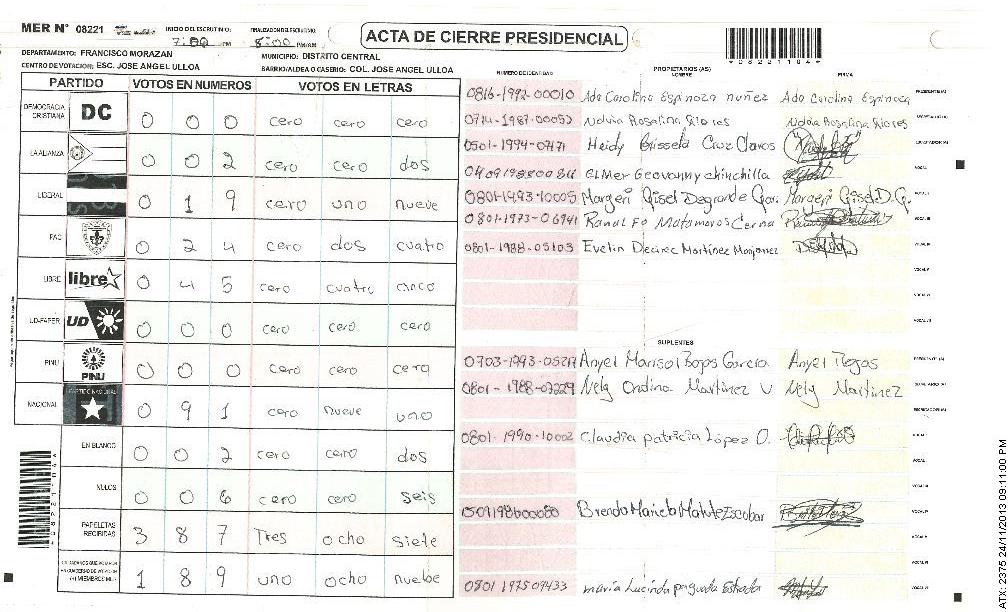 MER N° 08221 INICIO DEL ESCRUTINIO: 7:00 PM FINALIZACION DEL ESCRUTINIO: 8:00 PM/AM
ACTA DE CIERRE PRESIDENCIAL
DEPARTAMENTO: FRANCISCO MORAZAN MUNICIPIO: DISTRITO CENTRAL
CENTRO DE VOTACION: ESC. JOSE ANGEL ULLOA BARRIO/ALDEA O CASERIO: COL. JOSE ANGEL ULLOA
PARTIDO VOTOS EN NUMEROS VOTOS EN LETRAS
DEMOCRACIA CRISTIANA DC 0 0 0 cero cero cero
LA ALIANZA 0 0 2 cero cero dos
LIBERAL 0 1 9 cero uno nueve
PAC 0 2 4 cero dos cuatro
LIBRE libre 0 4 5 cero cuatro cinco
UD-FAPER UD 0 0 0 cero cero cero
PINU PINU 0 0 0 cero cero cero
NACIONAL 0 9 1 cero nueve uno
EN BLANCO 0 0 2 cero cero dos
NULOS 0 0 6 cero cero seis
PAPELETAS RECIBIDAS 3 8 7 Tres ocho siete
1 8 9 uno ocho nuebe
NUMERO DE IDENTIDAD PROPIETARIOS (AS) NOMBRE FIRMA
0816-1992-00010 Ada Carolina Espinoza nuñez Ada Carolina Espinoza PRESIDENTE (A)
Rosalina Flores Rosalina Flores SECRETARIO (A)
0501-1994-07171 Heidy Grissela Cruz ESCRUTADOR (A)
ELMER Geovanny chinchilla VOCAL
Margeri Gisel Margeri Gisel D.G.
0801-1973-06941 Matamoros Cerna
0801-1988-05103 Evelin Martinez
SUPLENTES
Anyel Marisol Garcia Anyel PRESIDENTE (A)
Nely Ondina Martinez V. Nely Martinez SECRETARIO (A)
ESCRUTADOR (A)
0801-1990-10002 Claudia patricia López O.
Brenda Escobar
maria Lucinda Estrada
08221104
ATX-2375 24/11/2013 09:11:00 PM